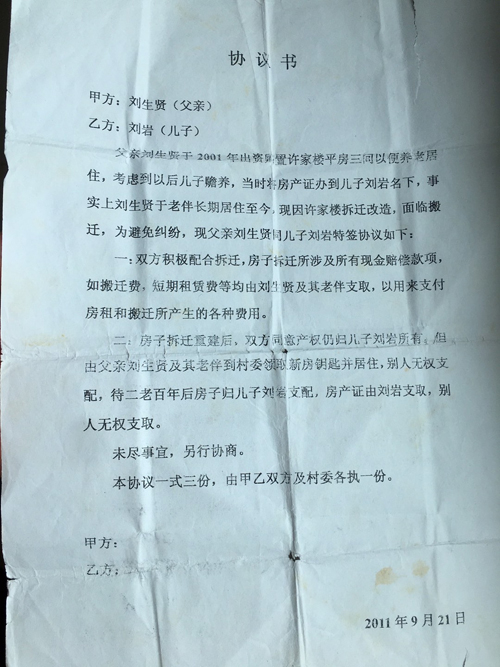 协议书
甲方：刘生贤（父亲）
乙方：刘岩（儿子）
父亲刘生贤于2001年出资购置许家楼平房三间以便养老居
住，考虑到以后儿子赡养，当时将房产证办到儿子刘岩名下，事
实上刘生贤于老伴长期居住至今，现因许家楼拆迁改造，面临搬
迁，为避免纠纷，现父亲刘生贤同儿子刘岩特签协议如下：
一：双方积极配合拆迁，房子拆迁所涉及所有现金赔偿款项，
如搬迁费，短期租赁费等均由刘生贤及其老伴支取，以用来支付
房租和搬迁所产生的各种费用。
二：房子拆迁重建后，双方同意产权仍归儿子刘岩所有，但
由父亲刘生贤及其老伴到村委领取新房钥匙并居住，别人无权支
配，待二老百年后房子归儿子刘岩支配，房产证由刘岩支取，别
人无权支取。
未尽事宜，另行协商。
本协议一式三份，由甲乙双方及村委各执一份。
甲方：
乙方：
2011年9月21日